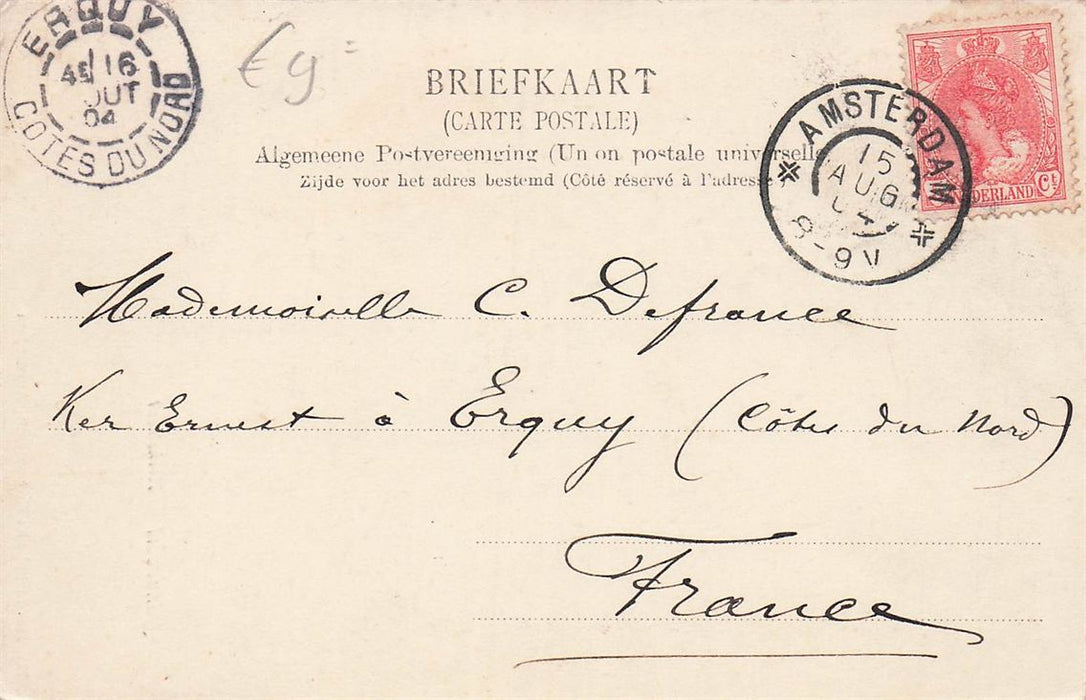 ERQUY
16
OUT
04
COTES DU NORD
€9
BRIEFKAART
(CARTE POSTALE)
Algemeene Postvereeniging (Un on postale universelle
Zijde voor het adres bestemd (Côté réservé à l'adresse)
AMSTERDAM
15
AUG
04
8-9V
NEDERLAND
Ct
Mademoiselle C. Defrance
Ker Ernest à Erquy (Côtes du Nord)
France